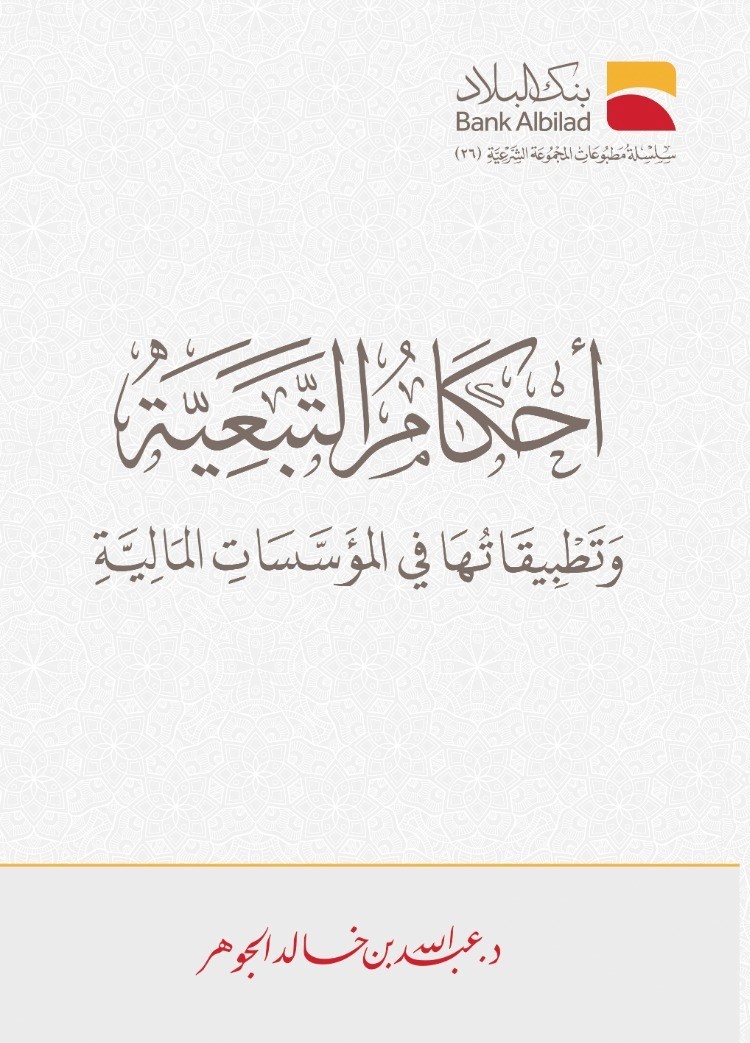 بنك البلاد
Bank Albilad
سِلسِلة مَطبُوعَات المَجمُوعَة الشَّرعِيَّة (٢٦)
أَحْكَامُ التَّبَعِيَّةِ
وَتَطْبِيقَاتُهَا فِي المُؤَسَّسَاتِ المَالِيَّةِ
د. عبد الله بن خالد الجوهر